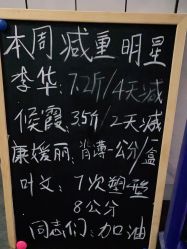 本周减重明星
李华：7.2斤/4天减
候霞：3斤/2天减
康媛丽：肖薄一公分/一盒
叶文：7次塑型
8公分
同志们：加油